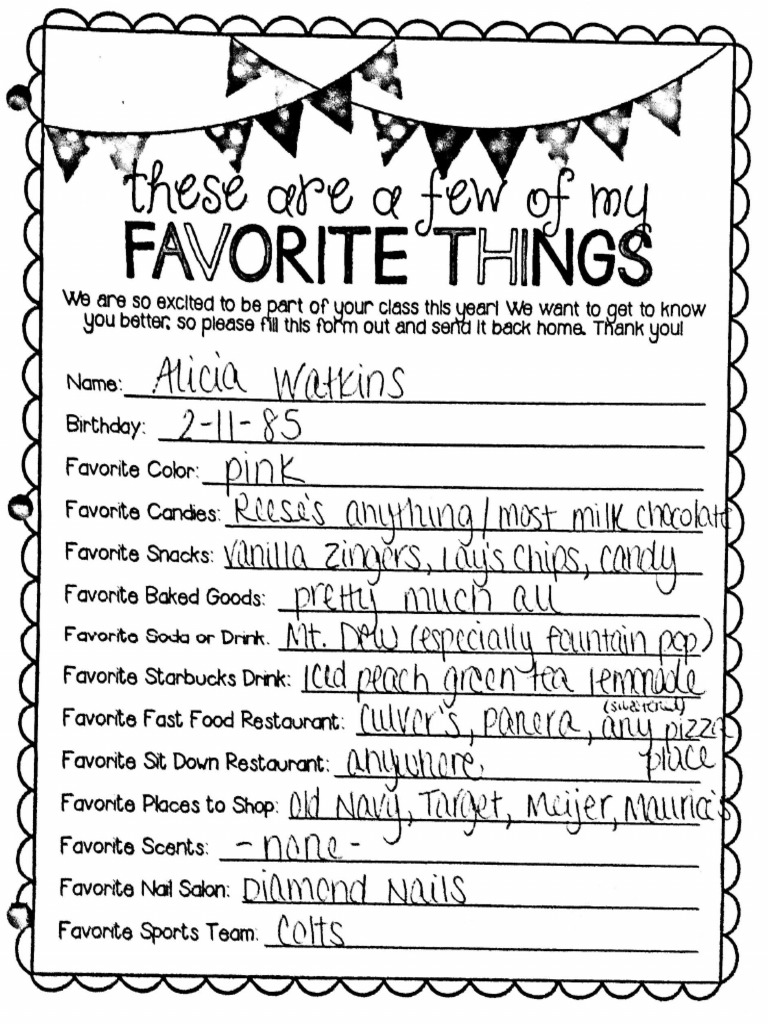 these are a few of my
FAVORITE THINGS
We are so excited to be part of your class this year! We want to get to know
you better, so please fill this form out and send it back home. Thank you!
Name: Alicia Watkins
Birthday: 2-11-85
Favorite Color: pink
Favorite Candies: Reese's anything/most milk chocolate
Favorite Snacks: vanilla zingers, Lay's chips, candy
Favorite Baked Goods: pretty much all
Favorite Soda or Drink: Mt. Dew (especially fountain pop)
Favorite Starbucks Drink: Iced peach green tea lemonade
(sweetened)
Favorite Fast Food Restaurant: Culver's, panera, any pizza
place
Favorite Sit Down Restaurant: anywhere
Favorite Places to Shop: Old Navy, Target, Meijer, Maurice's
Favorite Scents: -none-
Favorite Nail Salon: Diamond Nails
Favorite Sports Team: Colts